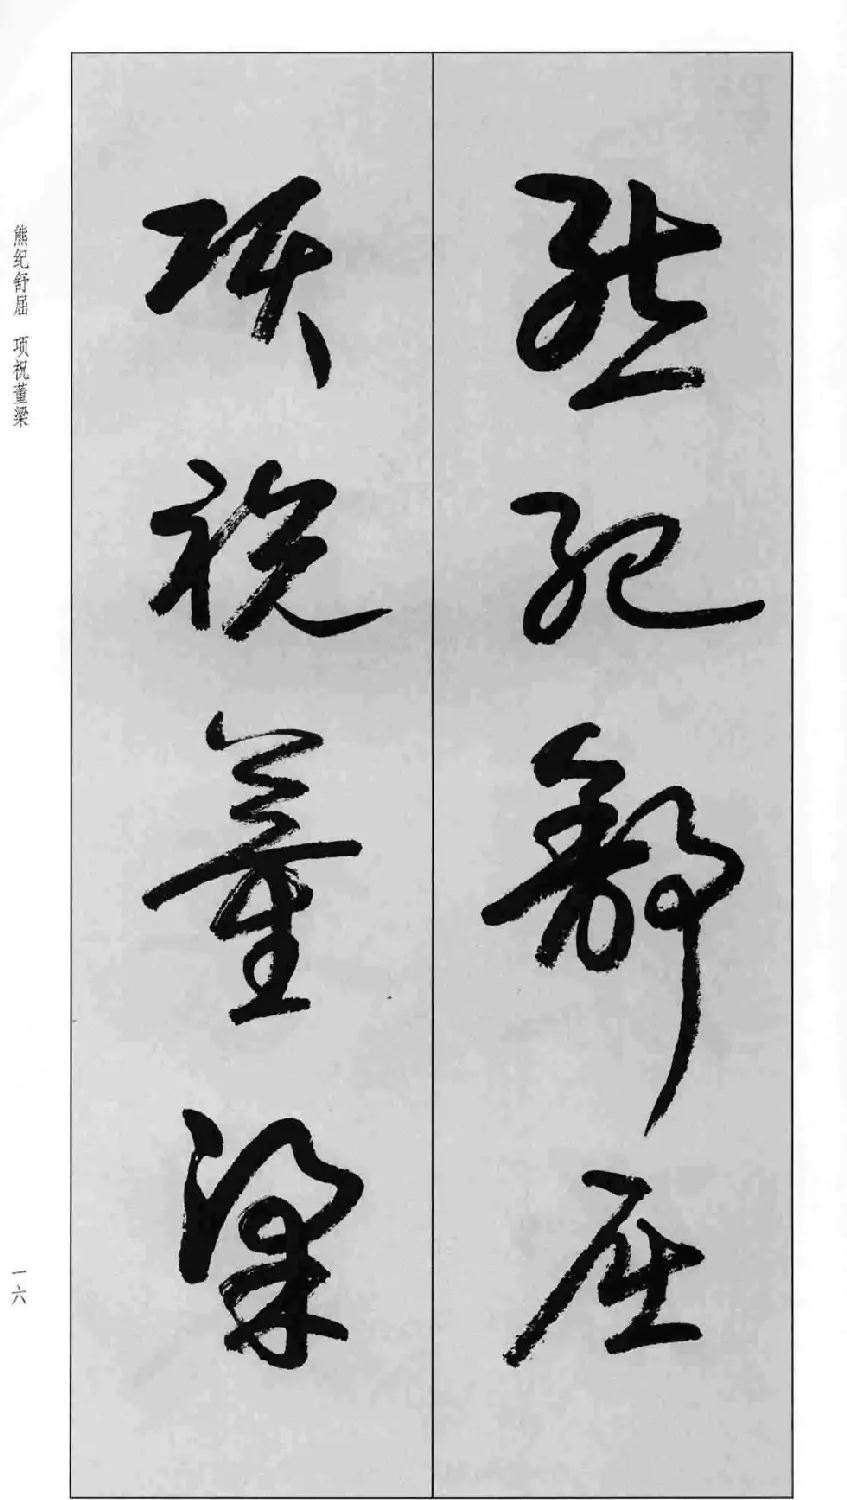 熊纪舒屈
项祝董梁
熊纪舒屈 项祝董梁
一六